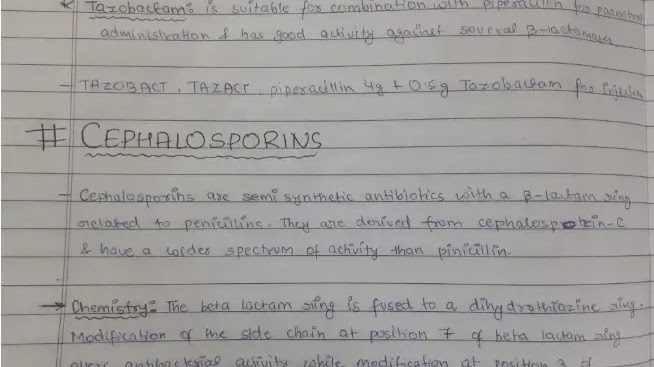 * Tazobactam: is suitable for combination with piperacillin for parenteral
administration & has good activity against several β-lactamases
- TAZOBACT, TAZACT, piperacillin 4g + 0.5g Tazobactam for injection
# CEPHALOSPORINS
- Cephalosporins are semi synthetic antibiotics with a β-lactam ring
related to penicillins. They are derived from cephalosporin-C
& have a wider spectrum of activity than pinicillin.
→ Chemistry: The beta lactam ring is fused to a dihydrothiazine ring.
Modification of the side chain at position 7 of beta lactam ring
alters antibacterial activity while modification at position 3 of